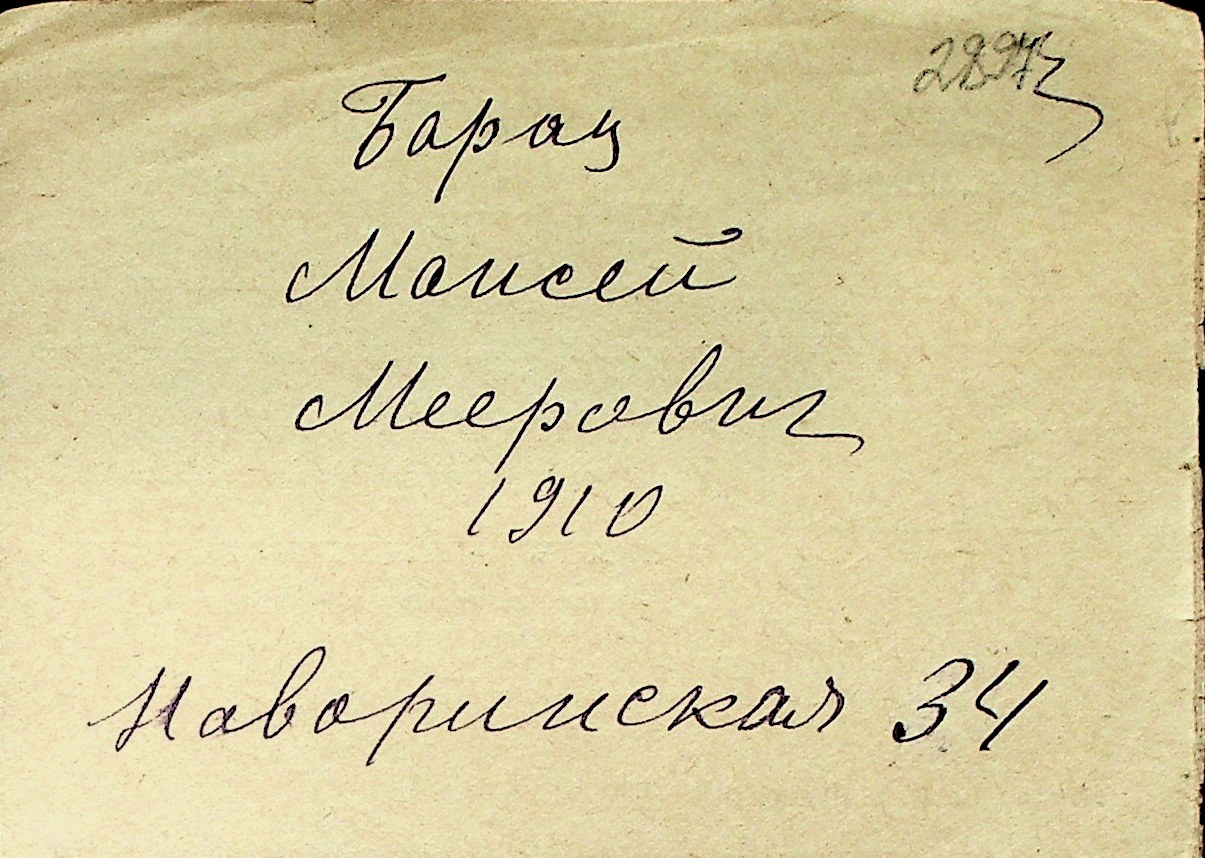 Барац
Моисей
Меерович
1910
Наворинская 34